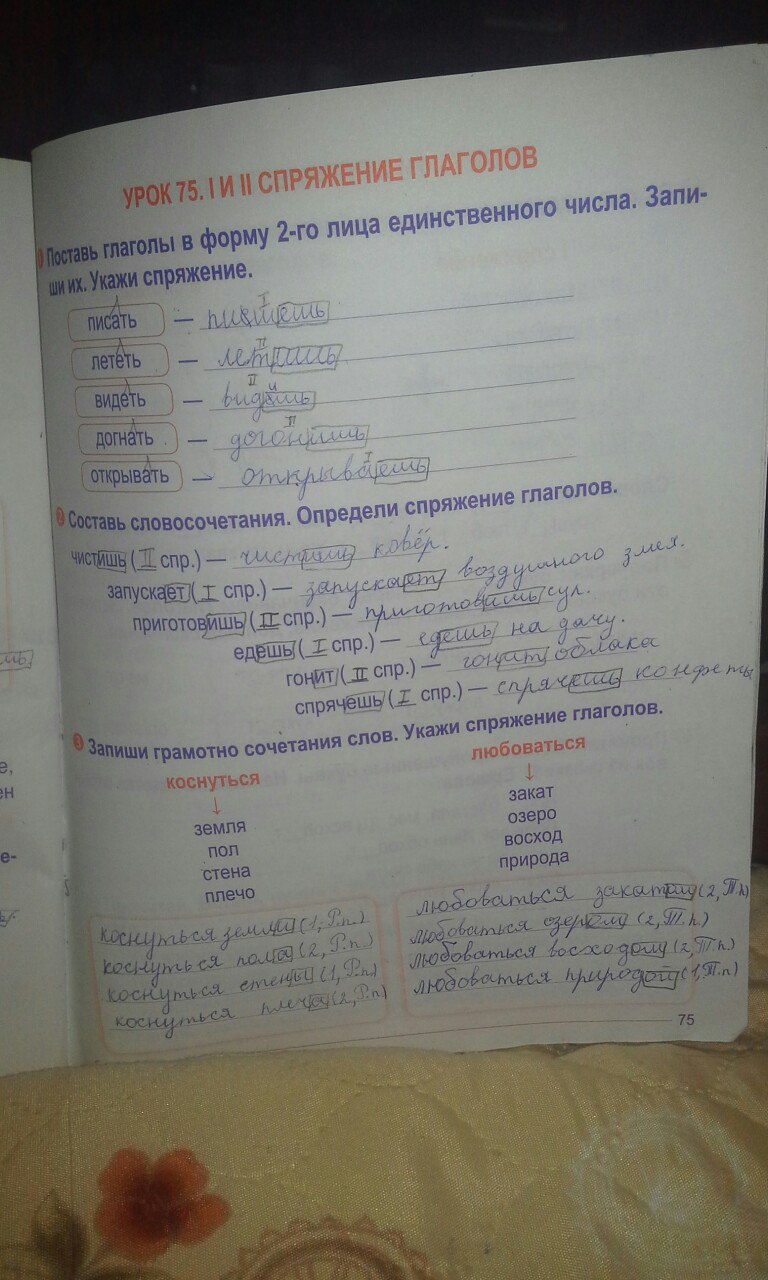 УРОК 75. I И II СПРЯЖЕНИЕ ГЛАГОЛОВ
1 Поставь глаголы в форму 2-го лица единственного числа. Запи-
ши их. Укажи спряжение.
I
писать — пишешь
II
лететь — летишь
II и
видеть — видешь
II
догнать — догонишь
I
открывать — открываешь
2 Составь словосочетания. Определи спряжение глаголов.
чистишь (II спр.) — чистишь ковёр.
запускает (I спр.) — запускает воздушного змея.
приготовишь (II спр.) — приготовишь суп.
едешь (I спр.) — едешь на дачу.
гонит (II спр.) — гонит облака
спрячешь (I спр.) — спрячешь конфеты
3 Запиши грамотно сочетания слов. Укажи спряжение глаголов.
коснуться любоваться
↓ ↓
земля закат
пол озеро
стена восход
плечо природа
коснуться земли (1, Р.п.) любоваться закатом (2, Т.п)
коснуться пола (2, Р.п.) любоваться озером (2, Т.п)
коснуться стены (1, Р.п) любоваться восходом (2, Т.п)
коснуться плеча (2, Р.п) любоваться природой (1, Т.п)
75